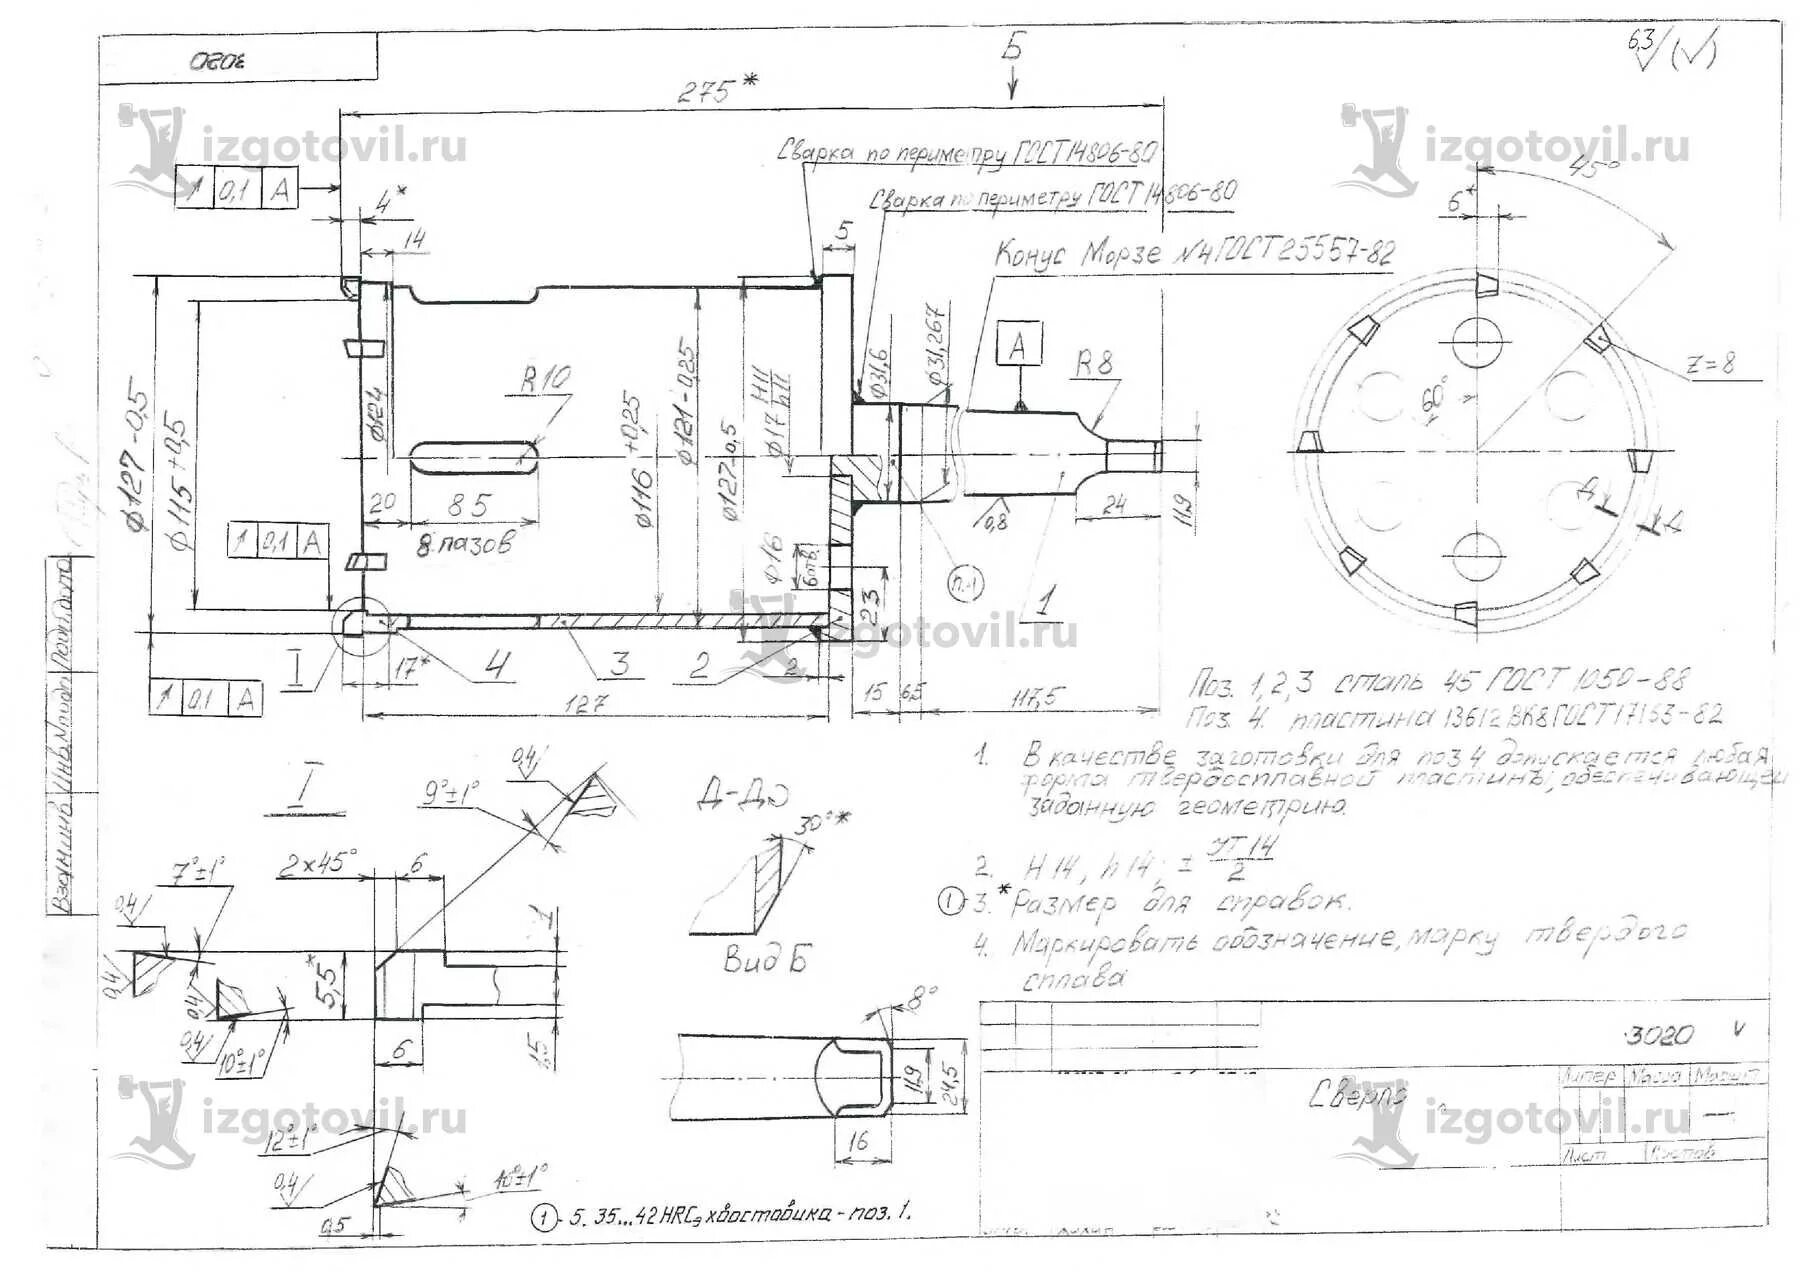 3020
6,3 (√)
Б
275*
izgotovil.ru
izgotovil.ru
Сварка по периметру ГОСТ 14806-80
Сварка по периметру ГОСТ 14806-80
45°
6*
0,1 А
4*
14
5
Конус Морзе №4 ГОСТ 25557-82
ф127-0,5
ф115+0,5
ф124
R10
ф116+0,25
ф121-0,25
ф127-0,5
ф17 H11/h11
ф31,6
ф31,267
А
R8
Z=8
60°
20
85
8 пазов
ф16
6 отв.
23
0,8
24
11,9
Д Д
0,1 А
п.1
1
izgotovil.ru
I
17*
4
3
2
2
0,1 А
127
15
6,5
117,5
Поз. 1,2,3 сталь 45 ГОСТ 1050-88
Поз. 4. пластина 13612 ВК8 ГОСТ 17163-82
1. В качестве заготовки для поз 4 допускается любая
форма твердосплавной пластины, обеспечивающей
заданную геометрию.
2. H14, h14, ± JT14/2
1 3. *Размер для справок.
4. Маркировать обозначение, марку твердого
сплава
I
0,4
9°±1°
Д-Д
30°*
2×45°
6
7°±1°
0,4
1
5,5*
0,4
0,4
0,4
10°±1°
6
1,5
Вид Б
8°
11,9
24,5
16
izgotovil.ru
12°±1°
0,4
10°±1°
0,5
1 - 5. 35...42 HRCэ хвостовика - поз. 1.
3020
Литер Масса Масшт
Сверло
izgotovil.ru
Лист Листов
Подп. и дата
Инв. № подл
Взам. инв